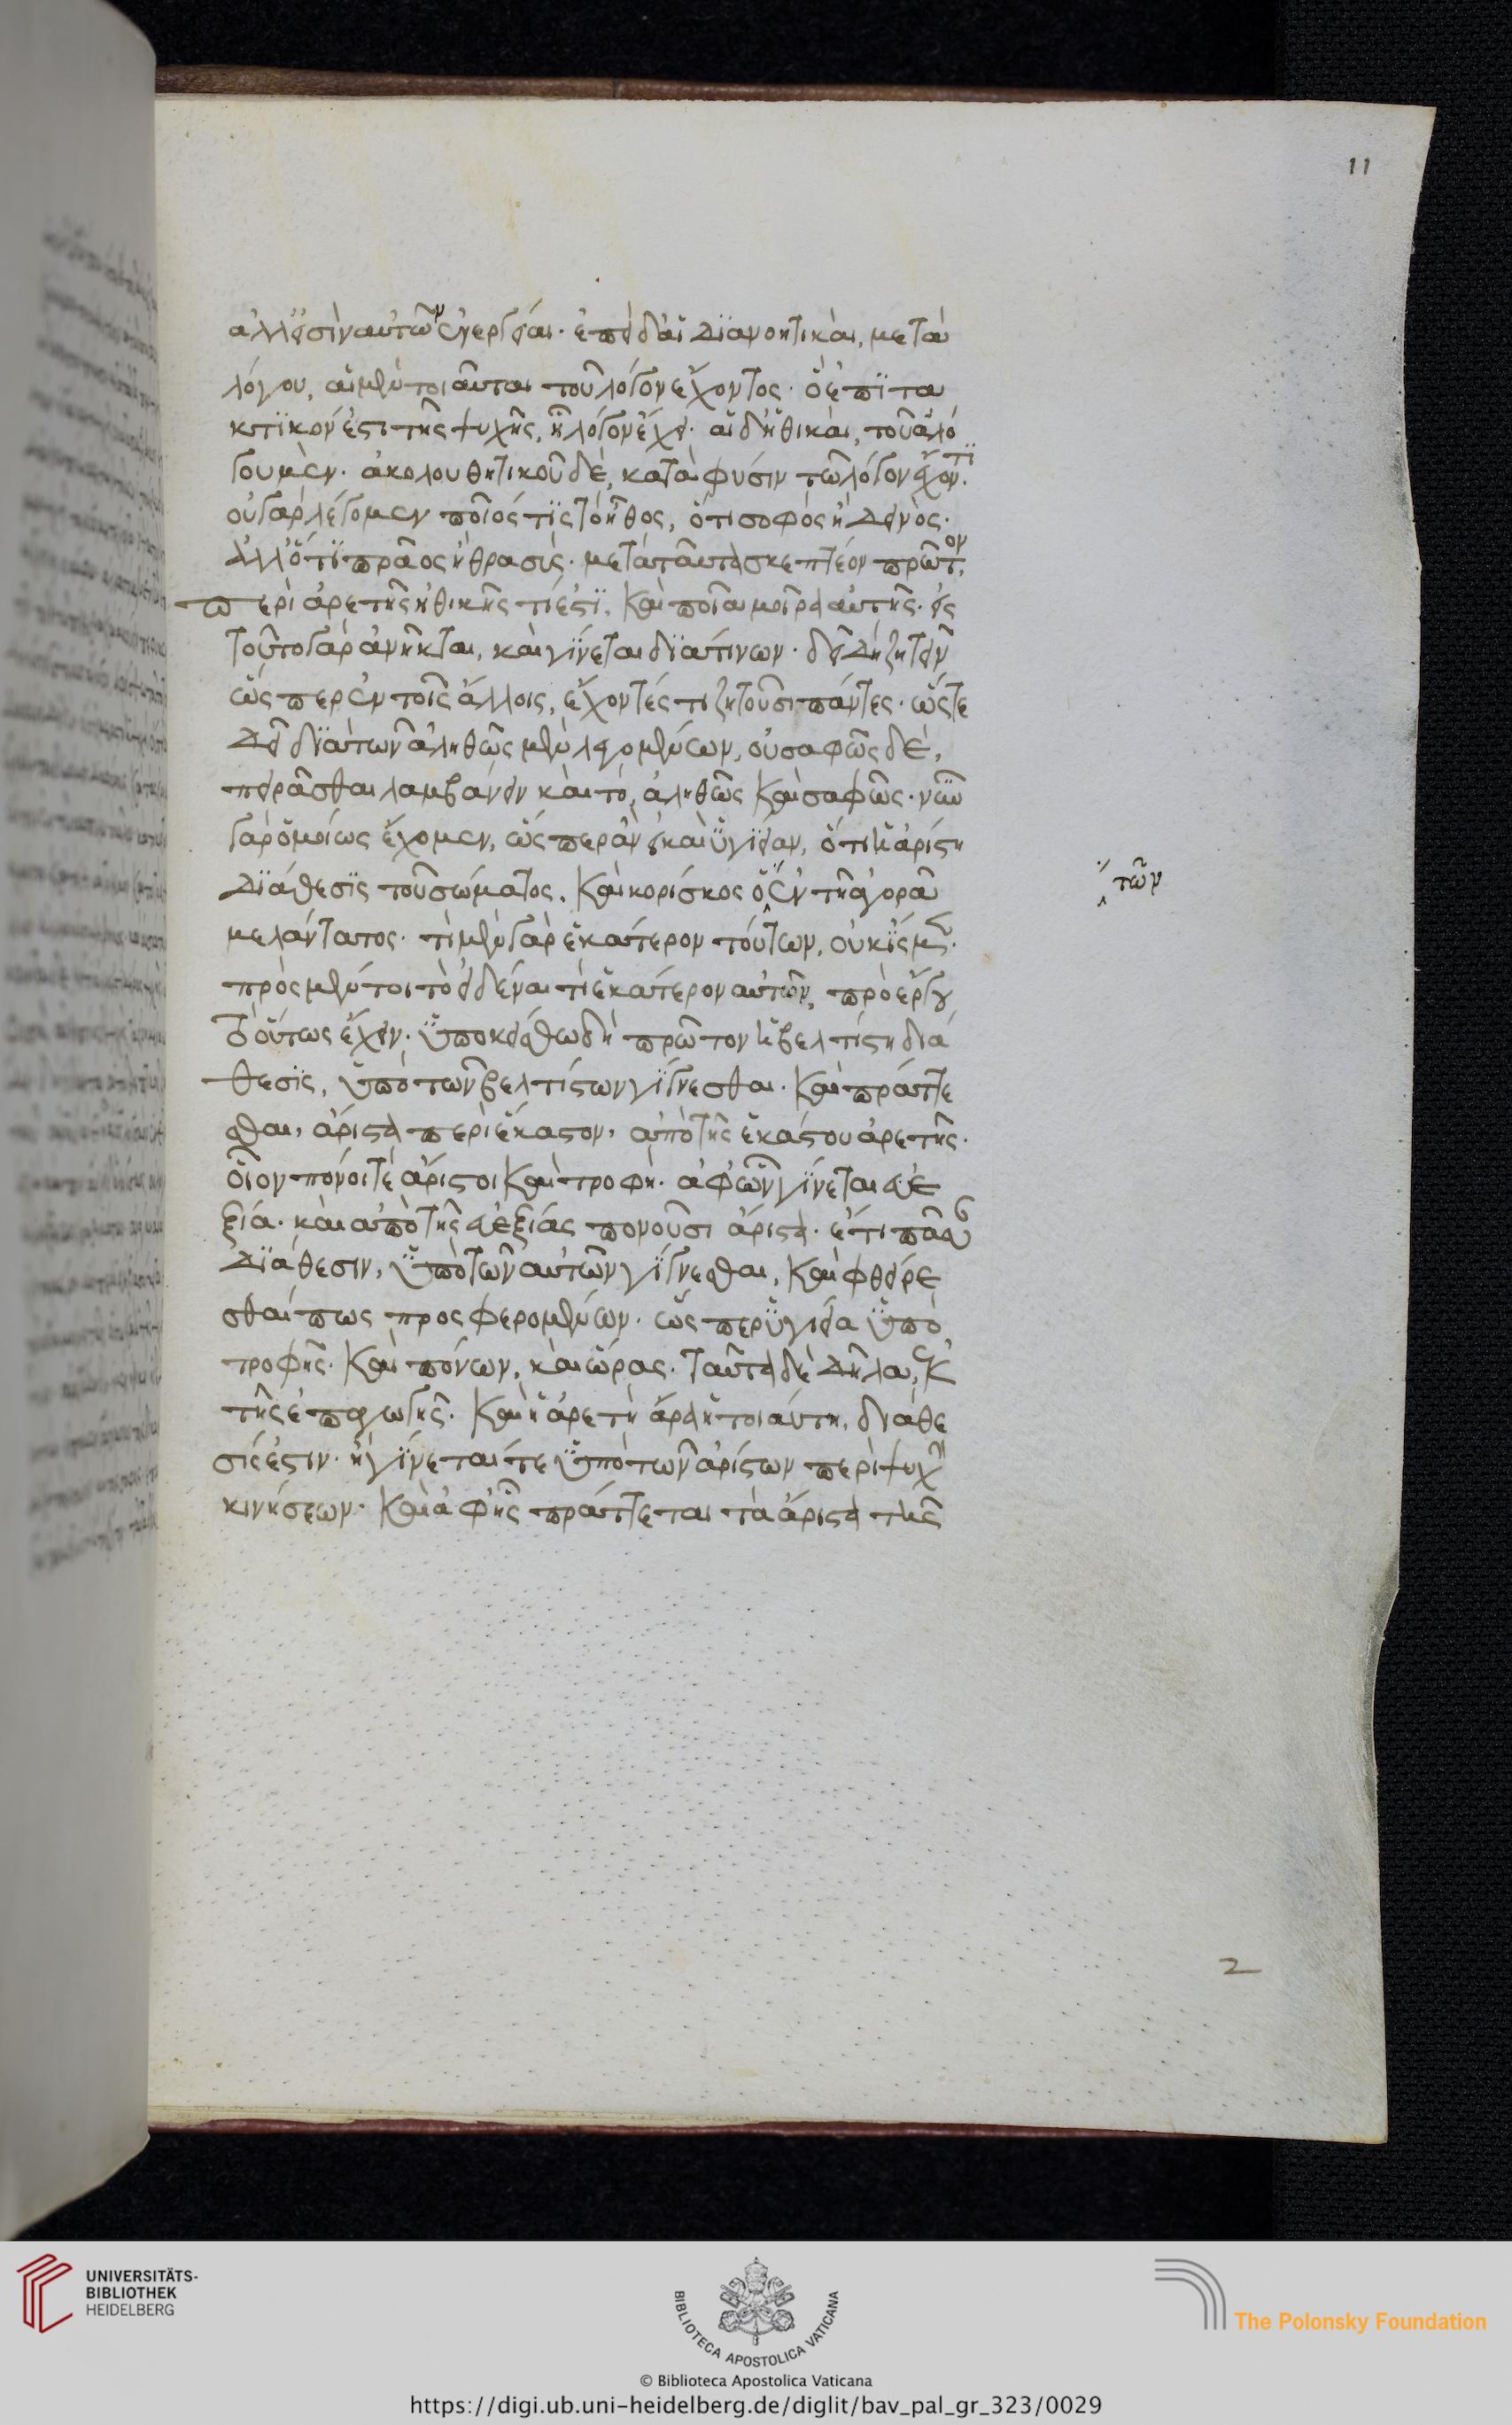 11
ἀλλ' εἰσὶν αὐτῶν ἐνέργειαι· ἐπεὶ δ' αἱ διανοητικαὶ, μετὰ
λόγου, αἱ μὲν τοιαῦται τοῦ λόγον ἔχοντος· ὃ ἐπιτα
κτικόν ἐστι τῆς ψυχῆς, ᾗ λόγον ἔχει· αἱ δ' ἠθικαὶ, τοῦ ἀλό
γου μὲν· ἀκολουθητικοῦ δὲ, κατὰ φύσιν τῶ λόγον ἔχοντι.
οὐ γὰρ λέγομεν ποῖός τις τὸ ἦθος, ὅτι σοφὸς ἢ δεινὸς·
ἀλλ' ὅτι πρᾶος ἢ θρασὺς· μετὰ ταῦτα σκεπτέον πρῶτον,
περὶ ἀρετῆς ἠθικῆς τί ἐστι, καὶ ποῖα μόρια αὐτῆς· εἰς
τοῦτο γὰρ ἀνῆκται, καὶ γίνεται διὰ τίνων· δεῖ δὴ ζητεῖν
ὥσπερ ἐν τοῖς ἄλλοις, ἔχοντές τι ζητοῦσι πάντες· ὥστε
δεῖ διὰ τῶν ἀληθῶς μὲν λεγομένων, οὐ σαφῶς δὲ,
πειρᾶσθαι λαμβάνειν καὶ τὸ, ἀληθῶς καὶ σαφῶς· νῦν
γὰρ ὁμοίως ἔχομεν, ὥσπερ ἂν εἰ καὶ ὑγίειαν, ὅτι ἡ ἀρίστη
διάθεσις τοῦ σώματος, καὶ κορίσκος ὁ ἐν τῆ ἀγορᾶ
τῶν
μελάντατος· τί μὲν γὰρ ἑκάτερον τούτων, οὐκ ἴσμεν·
πρὸς μέντοι τὸ εἰδέναι τί ἑκάτερον αὐτῶν, πρὸ ἔργου
τὸ οὕτως ἔχειν· ὑποκείσθω δὴ πρῶτον ἡ βελτίστη διά
θεσις, ὑπὸ τῶν βελτίστων γίγνεσθαι· καὶ πράττε
σθαι, ἄριστα περὶ ἕκαστον, ἀπὸ τῆς ἑκάστου ἀρετῆς·
οἷον πόνοι τὲ ἄριστοι καὶ τροφὴ· ἀφ' ὧν γίνεται εὐε
ξία· καὶ ἀπὸ τῆς εὐεξίας πονοῦσι ἄριστα· ἔτι πᾶσαν
διάθεσιν, ὑπὸ τῶν αὐτῶν γίγνεσθαι, καὶ φθείρε
σθαί πως προσφερομένων· ὥσπερ ὑγίεια ὑπὸ
τροφῆς· καὶ πόνων, καὶ ὥρας· ταῦτα δὲ δῆλα ἐκ
τῆς ἐπαγωγῆς· καὶ ἡ ἀρετὴ ἄρα ἡ τοιαύτη, διάθε
σίς ἐστιν· ἣ γίνεταί τε ὑπὸ τῶν ἀρίστων περὶ ψυχὴν
κινήσεων· καὶ ἀφ' ἧς πράττεται τὰ ἄριστα τῆς
2
UNIVERSITÄTS-
BIBLIOTHEK
HEIDELBERG
BIBLIOTECA APOSTOLICA VATICANA
The Polonsky Foundation
© Biblioteca Apostolica Vaticana
https://digi.ub.uni-heidelberg.de/diglit/bav_pal_gr_323/0029